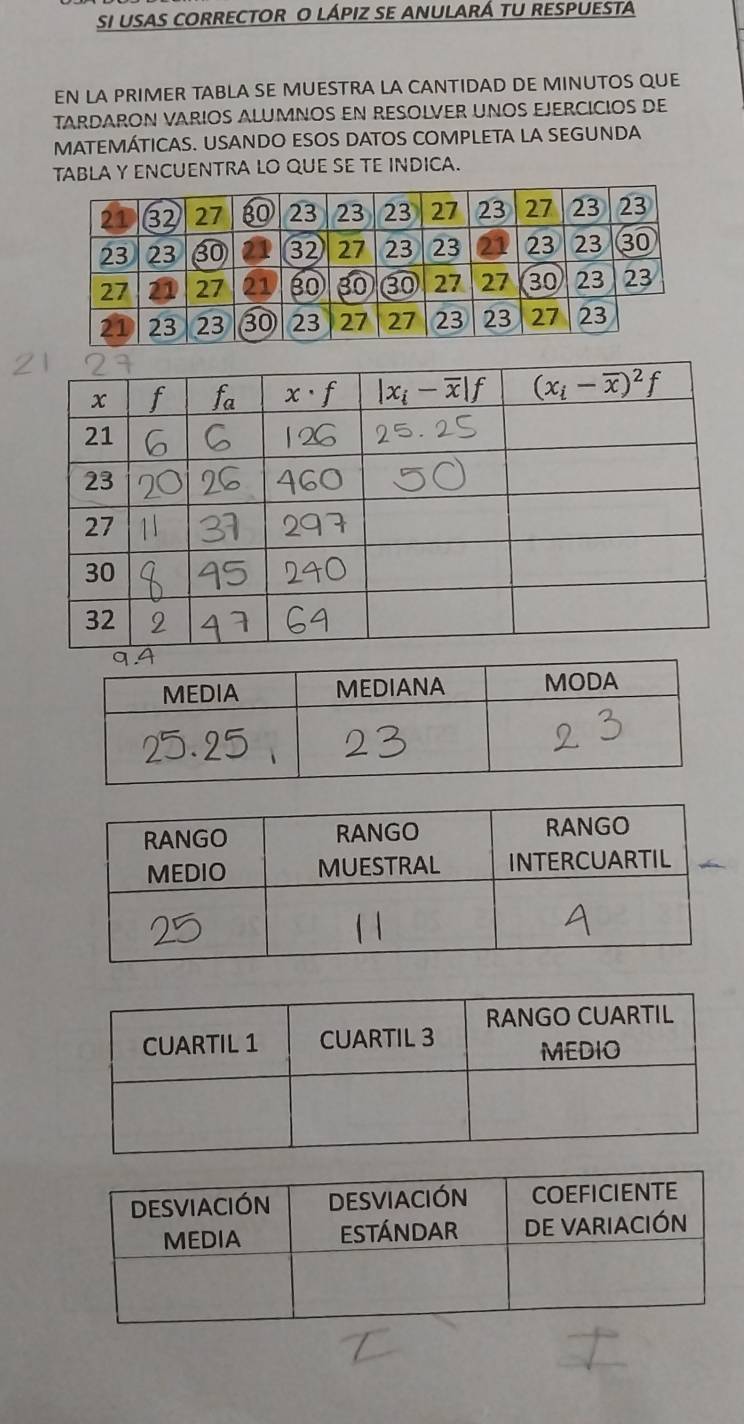 SI USAS CORRECTOR O LÁPIZ SE ANULARÁ TU RESPUESTA
EN LA PRIMER TABLA SE MUESTRA LA CANTIDAD DE MINUTOS QUE
TARDARON VARIOS ALUMNOS EN RESOLVER UNOS EJERCICIOS DE
MATEMÁTICAS. USANDO ESOS DATOS COMPLETA LA SEGUNDA
TABLA Y ENCUENTRA LO QUE SE TE INDICA.
21 32 27 30 23 23 23 27 23 27 23 23
23 23 30 21 32 27 23 23 21 23 23 30
27 21 27 21 30 30 30 27 27 30 23 23
21 23 23 30 23 27 27 23 23 27 23
21 27
x f fₐ x · f |xᵢ − x̅|f (xᵢ − x̅)²f
21 6 6 126 25.25
23 20 26 460 50
27 11 37 297
30 8 45 240
32 2 47 64
9.4
MEDIA MEDIANA MODA
25.25 23 23
RANGO MEDIO RANGO MUESTRAL RANGO INTERCUARTIL
25 11 4
CUARTIL 1 CUARTIL 3 RANGO CUARTIL MEDIO
DESVIACIÓN MEDIA DESVIACIÓN ESTÁNDAR COEFICIENTE DE VARIACIÓN